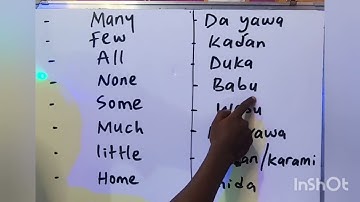 - Many - Da yawa
- Few - Kaɗan
- All - Duka
- None - Babu
- Some
- Much yawa
- little /karami
- Home
InShOt